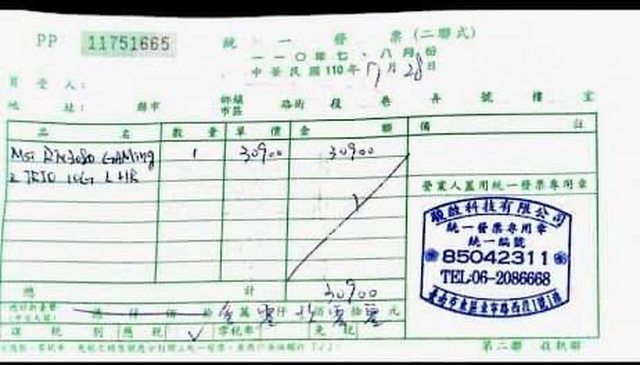 PP 11751665 統一發票(二聯式)
一一〇年七、八月份
中華民國110年7月28日
買受人:
地址: 縣市 鄉鎮市區 路街 段 巷 弄 號 樓 室
品名 數量 單價 金額 備註
MSI RTX3080 GAMING 1 30900 30900
Z TRIO 10G LHR
營業人蓋用統一發票專用章
科技有限公司
統一發票專用章
統一編號
85042311
TEL:06-2086668
總計 30900
仟 佰 拾 參萬 零仟 玖佰 零拾 零元
課稅別 應稅 ✓ 零稅率 免稅
第二聯 收執聯